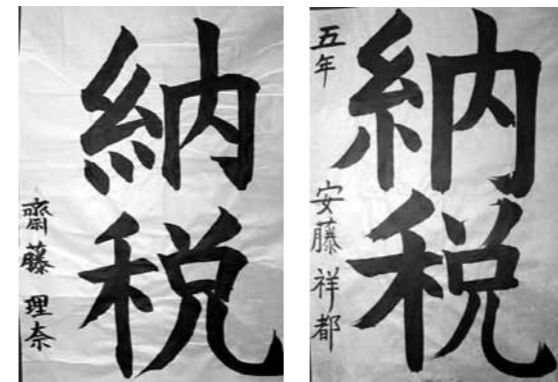 納税
齋藤 理奈
納税
五年
安藤 祥都